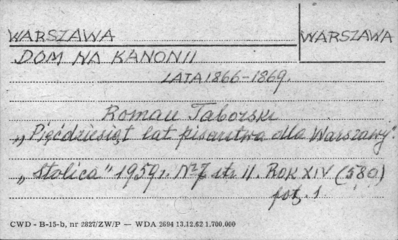 WARSZAWA WARSZAWA
DOM NA KANONII
LATA 1866-1869.
Roman Taborski
„Pięćdziesiąt lat pisarstwa dla Warszawy".
„Stolica" 1959 r. Nr 7 str. 11. ROK XIV (580)
fot. 1
CWD - B-15-b, nr 2827/ZW/P — WDA 2694 13.12.62 1.700.000